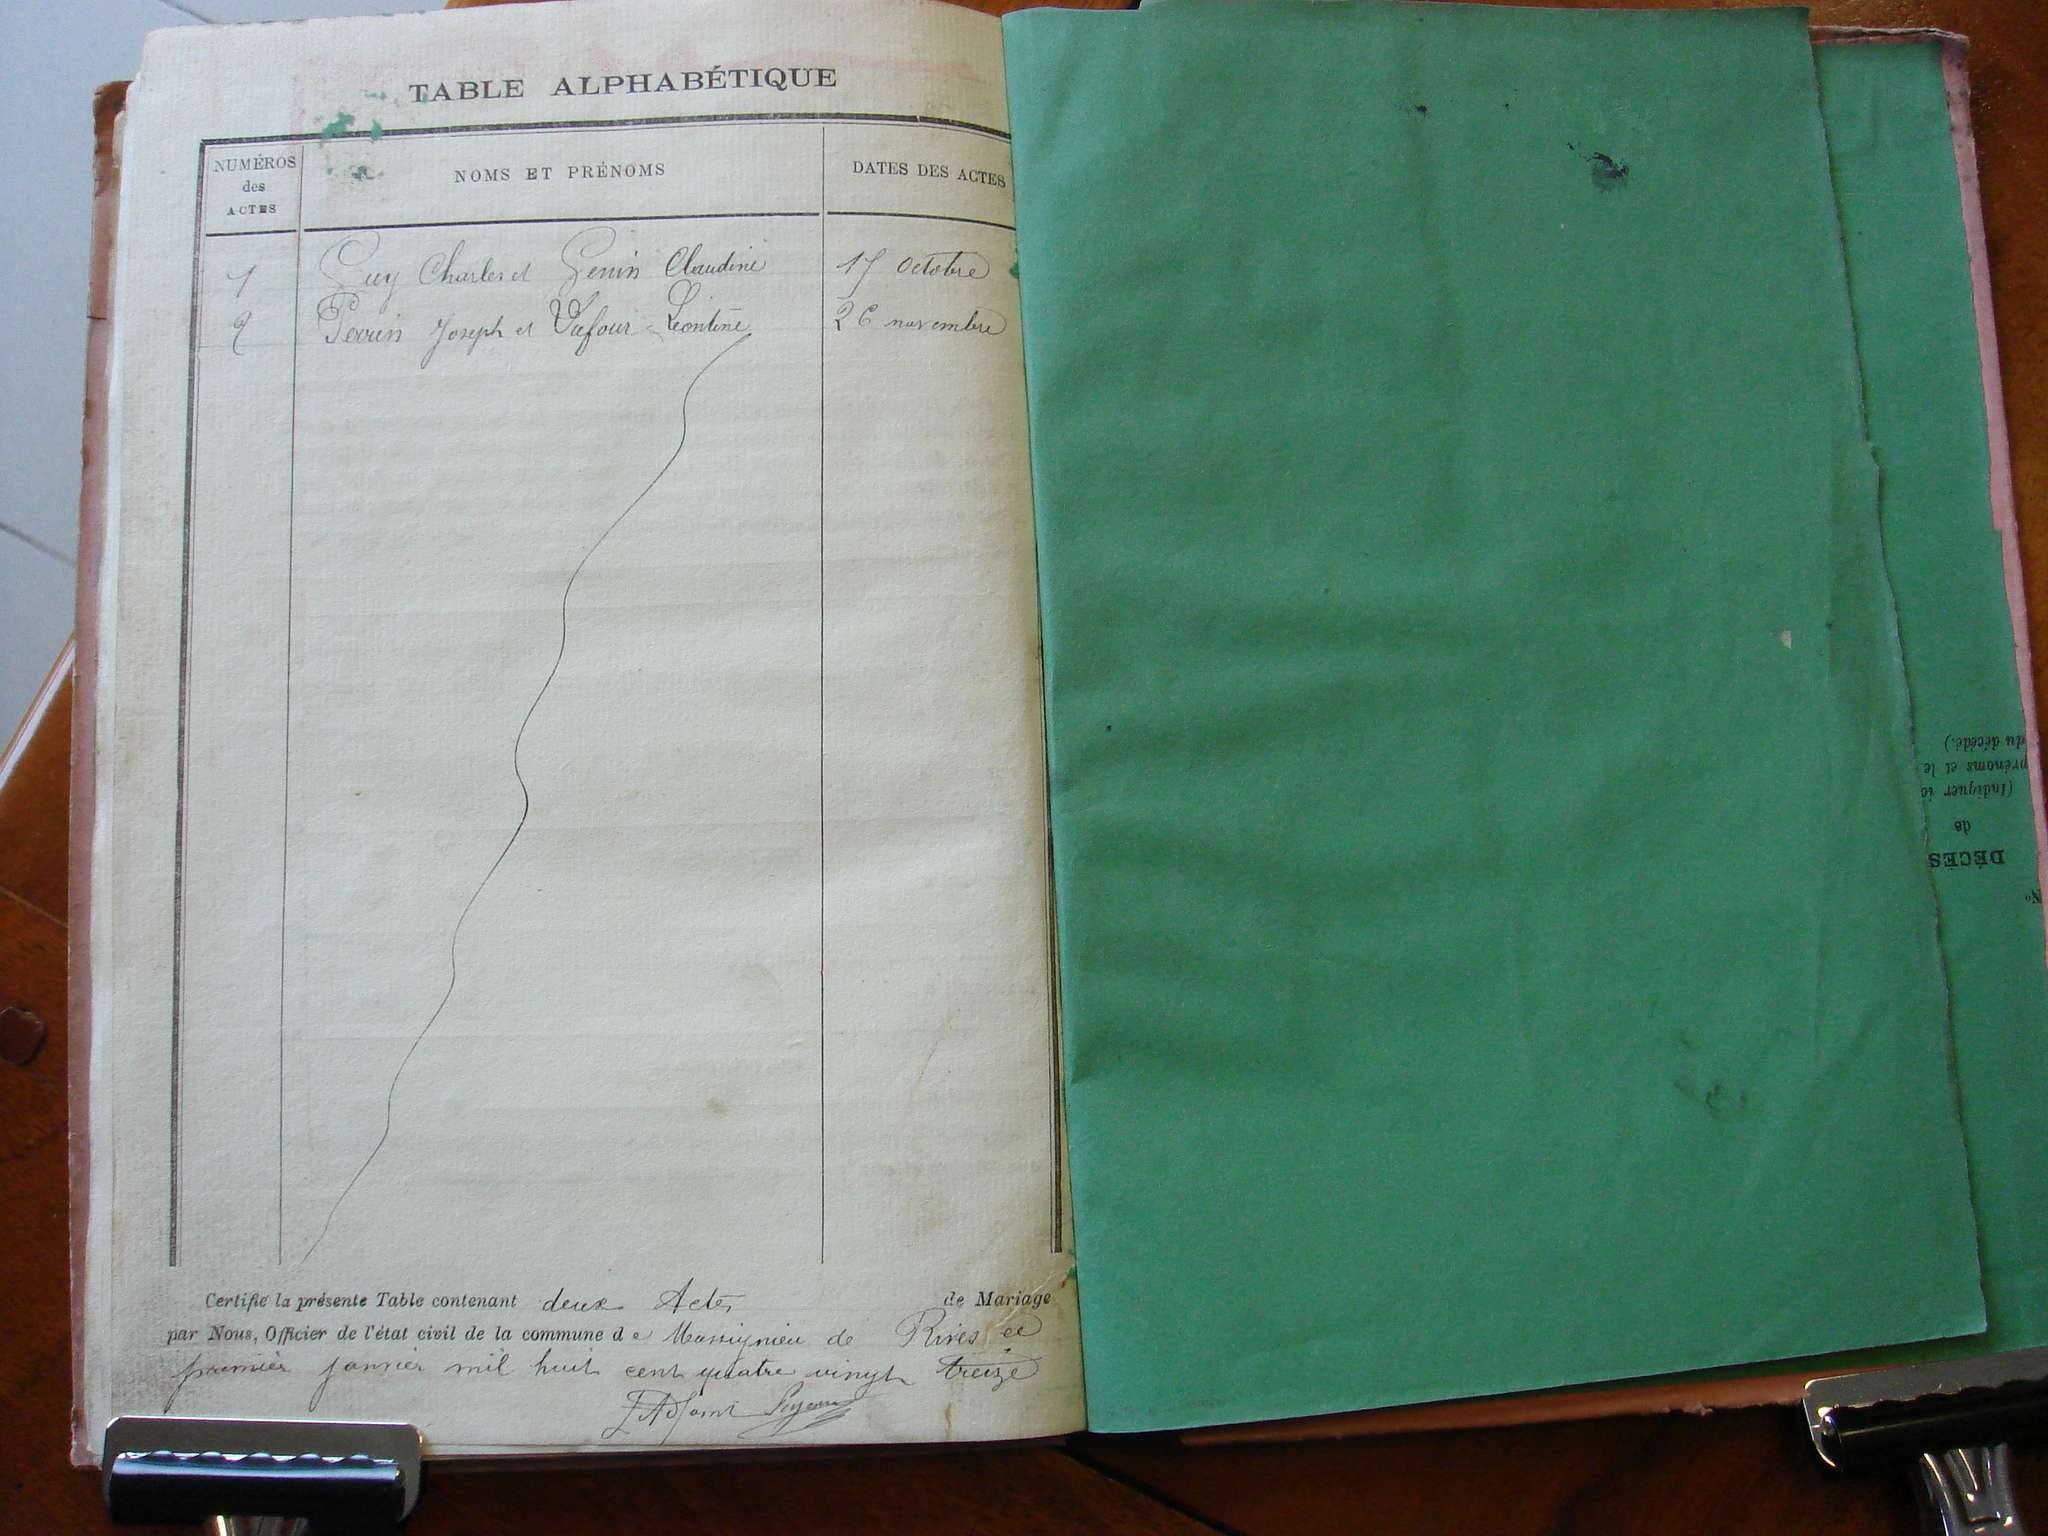 TABLE ALPHABÉTIQUE
NUMÉROS
des
ACTES
NOMS ET PRÉNOMS
DATES DES ACTES
1 Guy Charles et Genin Claudine 17 octobre
2 Perrin Joseph et Dufour Léontine 26 novembre
Certifié la présente Table contenant deux Actes de Mariage
par Nous, Officier de l'état civil de la commune de Massignieu de Rives ce
premier janvier mil huit cent quatre vingt treize
L'Adjoint
No
DÉCÈS
de
(Indiquer ic
prénoms et le
du décédé.)